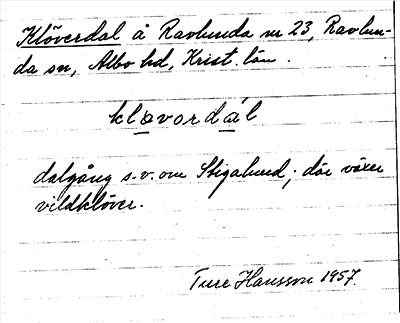 Klöverdal å Ravlunda nr 23, Ravlun-
da sn, Albo hd, Krist. län.
klavordál
dalgång s.v. om Stigalund; där växer
vildklöver.
Ture Hansson 1957.